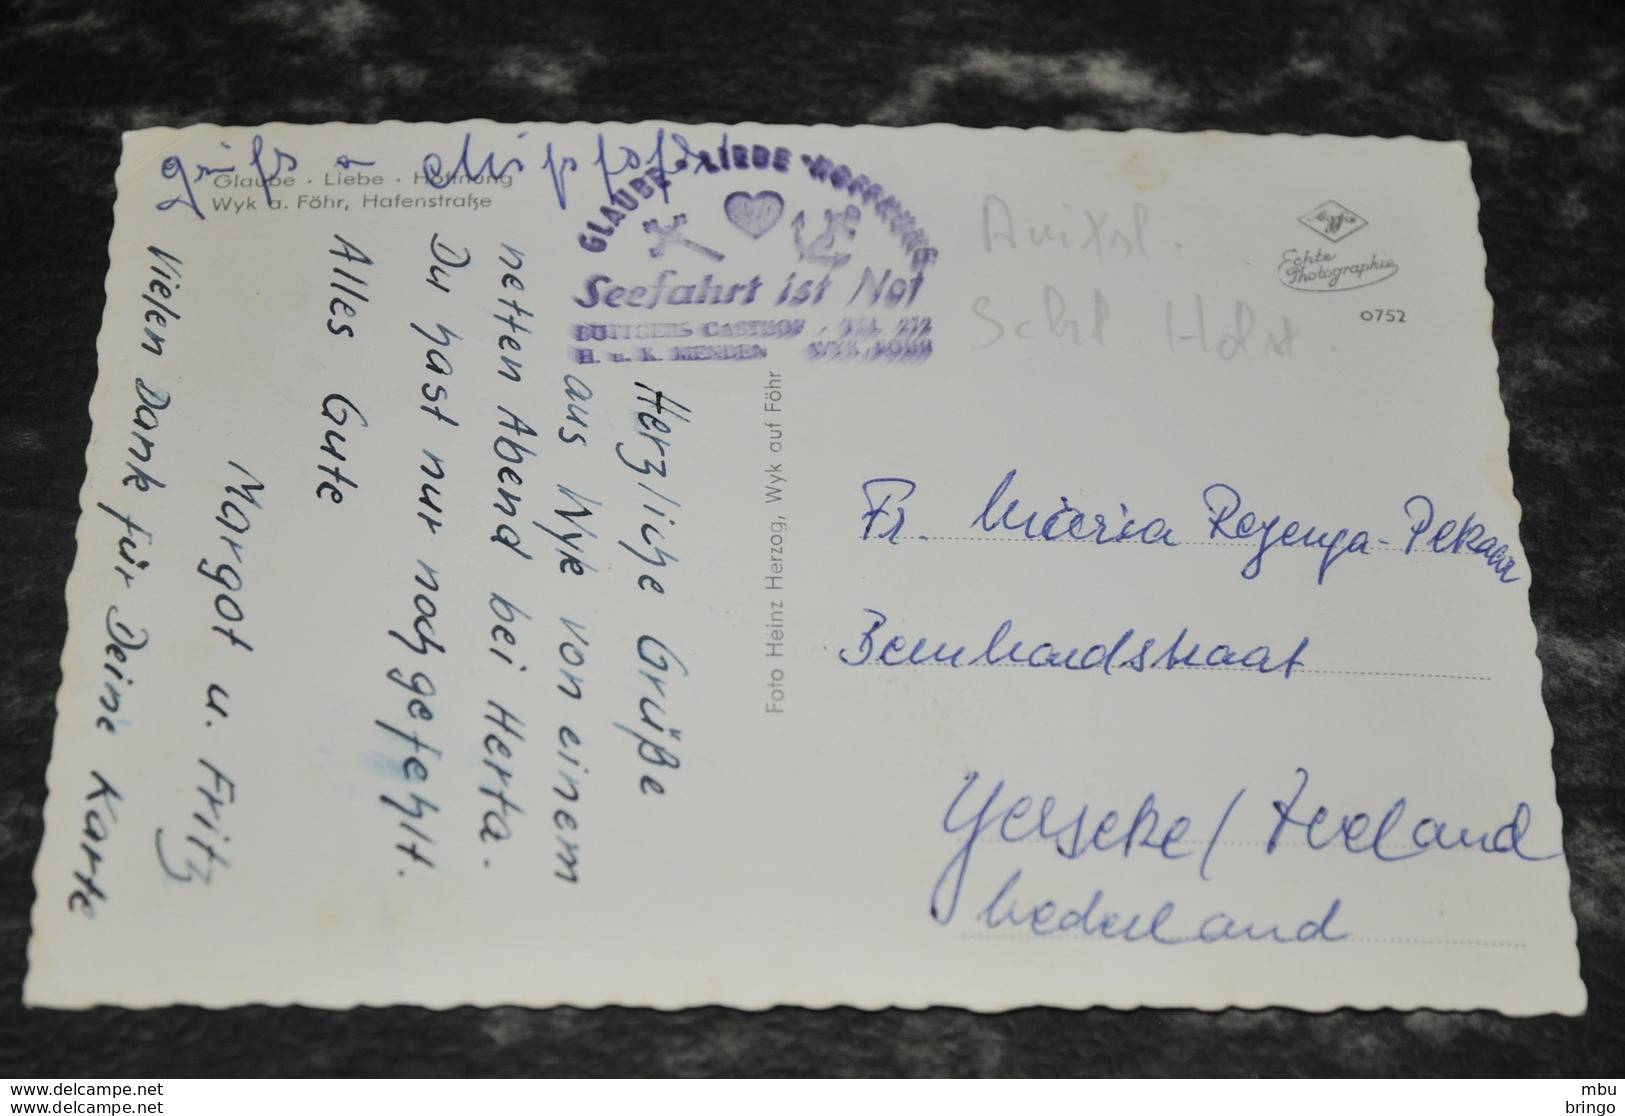 Glaube · Liebe · Hoffnung
Wyk a. Föhr, Hafenstraße
GLAUBE · LIEBE · HOFFNUNG
Seefahrt ist Not
BÖTTGERS GASTHOF · TEL. 272
H. u. K. MENDEN WYK FÖHR
Schl. Holst.
Echte
Photographie
0752
Herzliche Grüße
aus Wyk von einem
netten Abend bei Herta.
Du hast nur noch gefehlt.
Alles Gute
Margot u. Fritz
Vielen Dank für Deine Karte
Foto Heinz Herzog, Wyk auf Föhr
Fr.
Bernhardstraat
Yerseke / Zeeland
Nederland
www.delcampe.net
www.delcampe.net
mbu
bringo